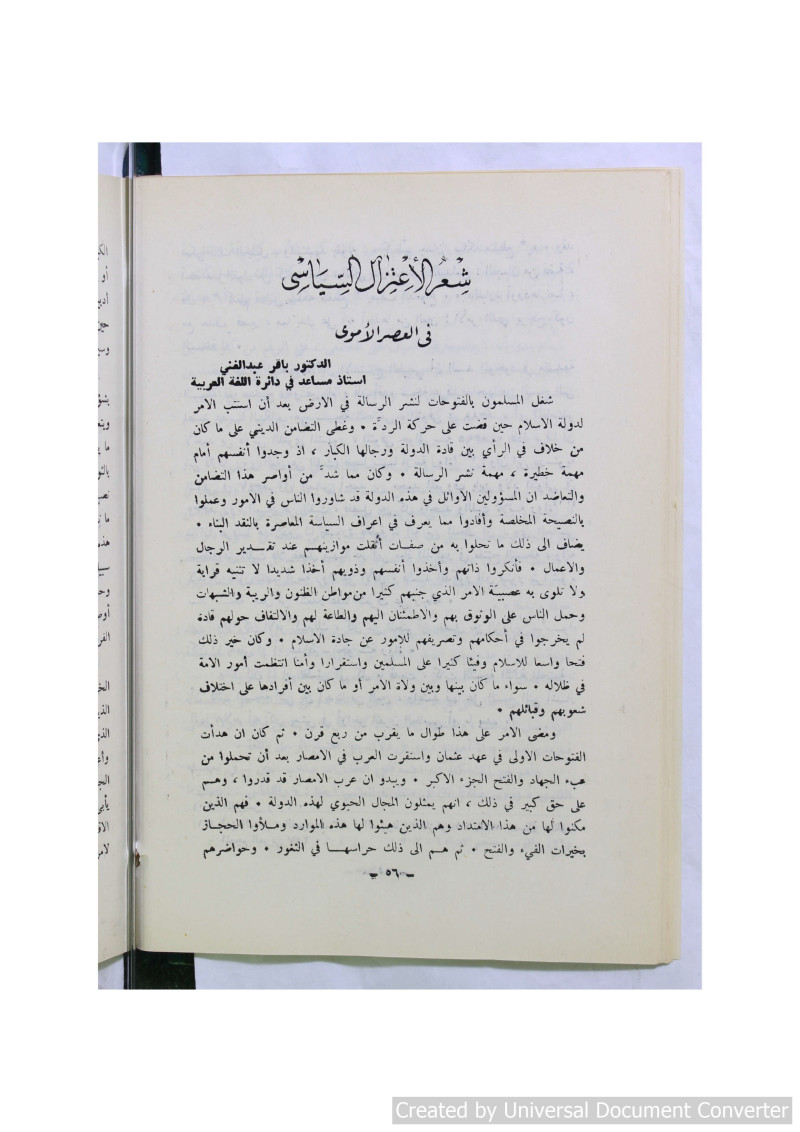 شعر الاعتزال السياسي
في العصر الأموي
الدكتور باقر عبدالغني
استاذ مساعد في دائرة اللغة العربية
شغل المسلمون بالفتوحات لنشر الرسالة في الارض بعد أن استتب الامر
لدولة الاسلام حين قضت على حركة الردّة • وغطى التضامن الديني على ما كان
من خلاف في الرأي بين قادة الدولة ورجالها الكبار ، اذ وجدوا أنفسهم أمام
مهمة خطيرة ، مهمة نشر الرسالة • وكان مما شدّ من أواصر هذا التضامن
والتعاضد ان المسؤولين الأوائل في هذه الدولة قد شاوروا الناس في الامور وعملوا
بالنصيحة المخلصة وأفادوا مما يعرف في اعراف السياسة المعاصرة بالنقد البناء •
يضاف الى ذلك ما تحلوا به من صفات أثقلت موازينهم عند تقدير الرجال
والاعمال • فأنكروا ذاتهم وأخذوا أنفسهم وذويهم أخذا شديدا لا تثنيه قرابة
ولا تلوى به عصبية الامر الذي جنبهم كثيرا من مواطن الظنون والريبة والشبهات
وحمل الناس على الوثوق بهم والاطمئنان اليهم والطاعة لهم والالتفاف حولهم قادة
لم يخرجوا في أحكامهم وتصريفهم للامور عن جادة الاسلام • وكان خير ذلك
فتحا واسعا للاسلام وفيئا كثيرا على المسلمين واستقرارا وأمنا انتظمت أمور الامة
في ظلاله • سواء ما كان بينها وبين ولاة الامر أو ما كان بين أفرادها على اختلاف
شعوبهم وقبائلهم •
ومضى الامر على هذا طوال ما يقرب من ربع قرن • ثم كان ان هدأت
الفتوحات الاولى في عهد عثمان واستقرت العرب في الامصار بعد أن تحملوا من
عبء الجهاد والفتح الجزء الاكبر • ويبدو ان عرب الامصار قد قدروا ، وهم
على حق كبير في ذلك ، انهم يمثلون المجال الحيوي لهذه الدولة • فهم الذين
مكنوا لها من هذا الامتداد وهم الذين هيئوا لها هذه الموارد وملأوا الحجاز
بخيرات الفيء والفتح • ثم هم الى ذلك حراسها في الثغور • وحواضرهم
– ٥٦ –
Created by Universal Document Converter